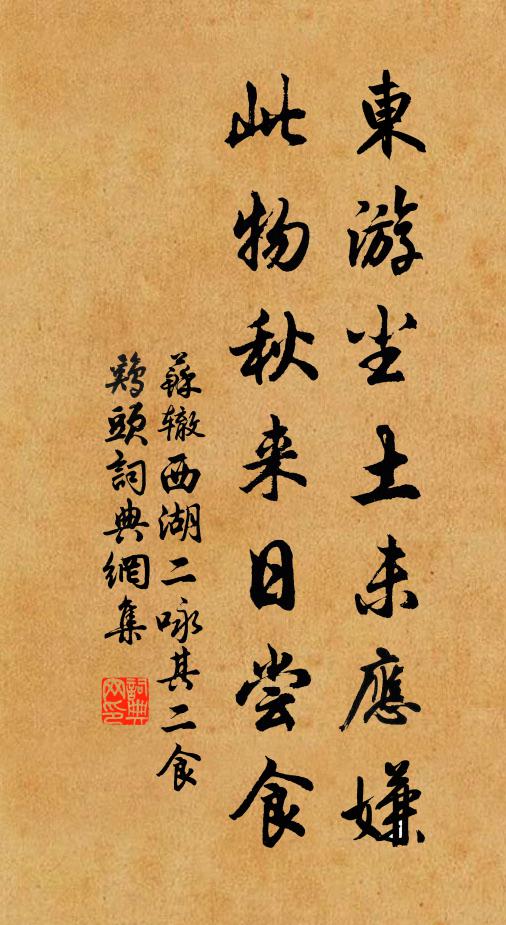 東游尘土未應嫌
此物秋来日尝食
蘇辙西湖二咏其二食
鷄頭詞典網集
詞典
网印